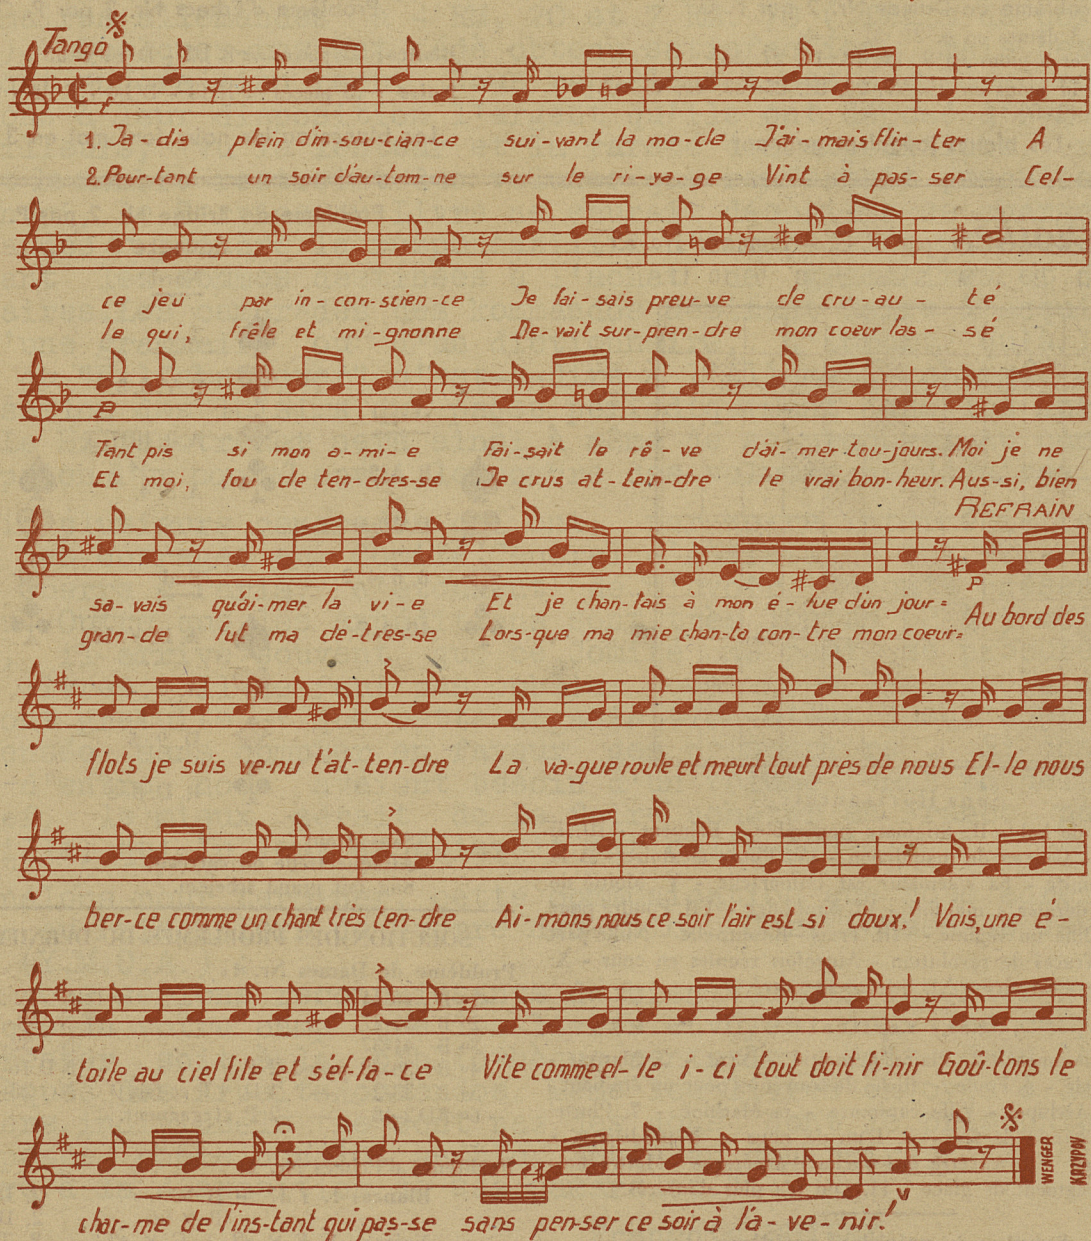 Tango
1. Ja-dis plein d'in-sou-cian-ce sui-vant la mo-de J'ai-mais flir-ter A
2. Pour-tant un soir d'au-tom-ne sur le ri-va-ge Vint à pas-ser Cel-
ce jeu par in-con-scien-ce Je fai-sais preu-ve de cru-au-té
le qui, frêle et mi-gnonne De-vait sur-pren-dre mon coeur las-sé
p
Tant pis si mon a-mi-e Fai-sait le rê-ve d'ai-mer tou-jours. Moi je ne
Et moi, fou de ten-dres-se Je crus at-tein-dre le vrai bon-heur. Aus-si, bien
REFRAIN
p
sa-vais qu'ai-mer la vi-e Et je chan-tais à mon é-lue d'un jour: Au bord des
gran-de fut ma dé-tres-se Lors-que ma mie chan-ta con-tre mon coeur:
flots je suis ve-nu t'at-ten-dre La va-gue roule et meurt tout près de nous El-le nous
ber-ce comme un chant très ten-dre Ai-mons nous ce soir l'air est si doux! Vois, une é-
toile au ciel file et s'ef-fa-ce Vite comme el-le i-ci tout doit fi-nir Goû-tons le
char-me de l'ins-tant qui pas-se sans pen-ser ce soir à l'a-ve-nir!
WENGER